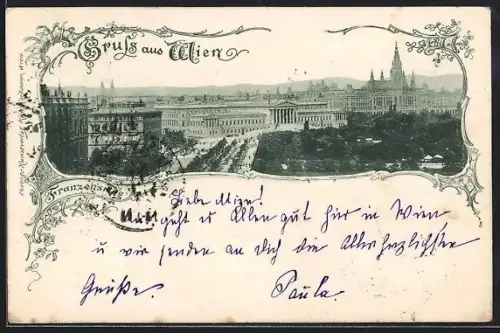 Gruß aus Wien
Franzens
Liebe Mizi!
geht es Allen gut hier in Wien
u wir senden an dich die Allerherzlichsten
Grüße. Paula.